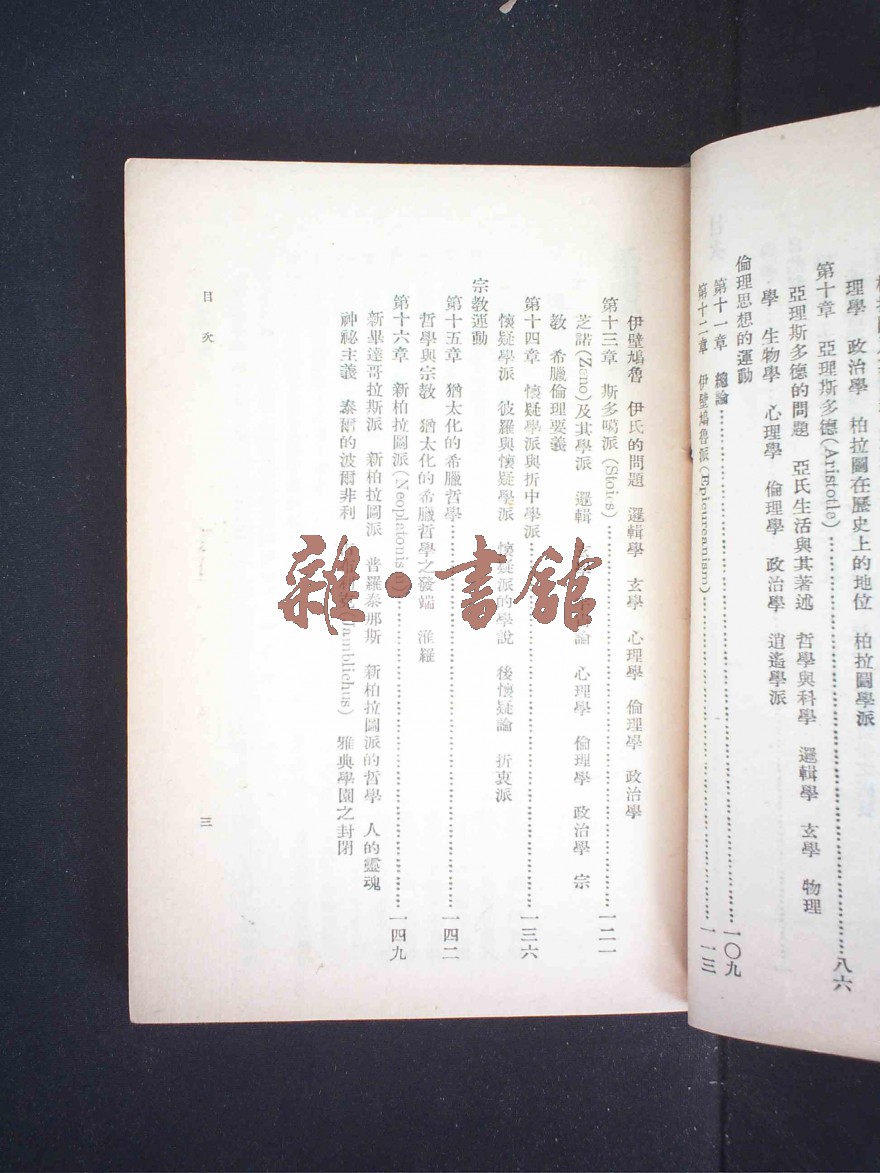 理學 政治學 柏拉圖在歷史上的地位 柏拉圖學派
第十章 亞理斯多德(Aristotle)……八六
亞理斯多德的問題 亞氏生活與其著述 哲學與科學 邏輯學 玄學 物理
學 生物學 心理學 倫理學 政治學 逍遙學派
倫理思想的運動
第十一章 總論……一〇九
第十二章 伊壁鳩魯派(Epicureanism)……一一三
伊壁鳩魯 伊氏的問題 邏輯學 玄學 心理學 倫理學 政治學
第十三章 斯多噶派(Stoics)……一二一
芝諾(Zeno)及其學派 邏輯 論 心理學 倫理學 政治學 宗
教 希臘倫理要義
第十四章 懷疑學派與折中學派……一三六
懷疑學派 彼羅與懷疑學派 懷疑派的學說 後懷疑論 折衷派
宗教運動
第十五章 猶太化的希臘哲學……一四二
哲學與宗教 猶太化的希臘哲學之發端 淮羅
第十六章 新柏拉圖派(Neoplatonism)……一四九
新畢達哥拉斯派 新柏拉圖派 普羅泰那斯 新柏拉圖派的哲學 人的靈魂
神祕主義 泰爾的波爾非利 (Jamblichus) 雅典學園之封閉
目次
三
雜·書館